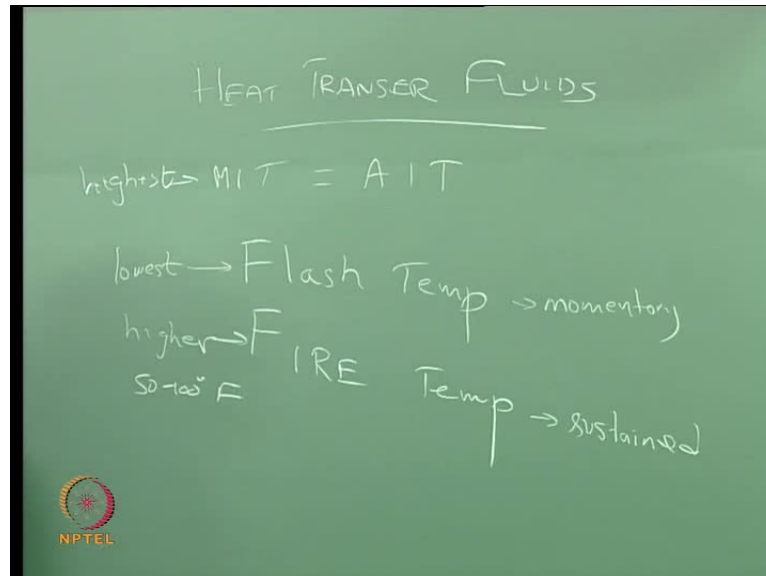 HEAT TRANSER FLUIDS
highest → MIT = AIT
lowest → Flash Temp → momentory
higher → FIRE Temp → sustained
50-100° F
NPTEL